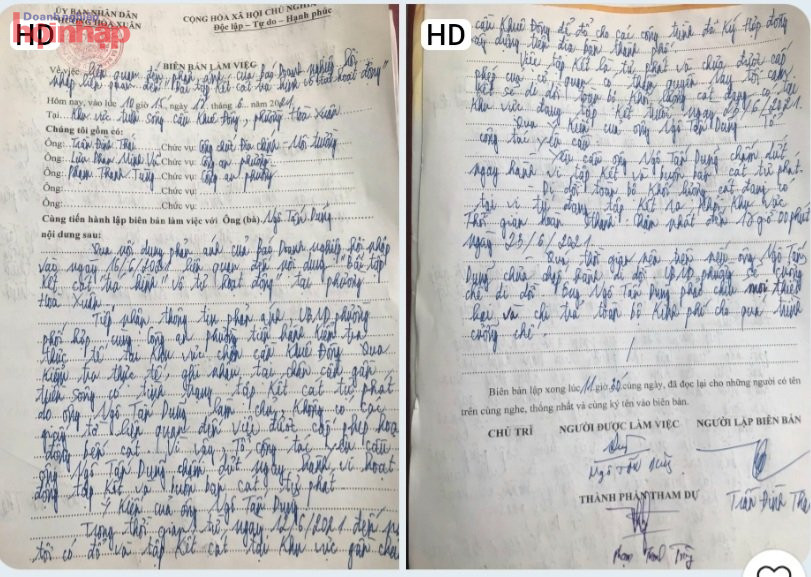 HD
Doanh nghiệp
Hội nhập
ỦY BAN NHÂN DÂN
PHƯỜNG HÒA XUÂN
CỘNG HÒA XÃ HỘI CHỦ NGHĨA
Độc lập - Tự do - Hạnh phúc
BIÊN BẢN LÀM VIỆC
Về việc: liên quan đến phản ánh của Báo Doanh nghiệp hội
nhập liên quan đến "Bãi tập kết cát trá hình vô tư hoạt động"
Hôm nay, vào lúc 10 giờ 15, ngày 17 tháng 6 năm 2021
Tại: Khu vực ven sông cầu Khuê Đông, phường Hòa Xuân
Chúng tôi gồm có:
Ông: Trần Đình Thái Chức vụ: Công chức Địa chính - Môi trường
Ông: Chức vụ: Công an phường
Ông: Phạm Thanh Tùng Chức vụ: Công an phường
Ông: Chức vụ:
Ông: Chức vụ:
Cùng tiến hành lập biên bản làm việc với Ông (bà) Ngô Tấn Dũng
nội dung sau:
Qua nội dung phản ánh của Báo Doanh nghiệp hội nhập
vào ngày 16/6/2021 liên quan đến nội dung "Bãi tập
kết cát trá hình" vô tư hoạt động" tại phường
Hoà Xuân.
Tiếp nhận thông tin phản ánh UBND phường
phối hợp cùng Công an phường tiến hành kiểm tra
thực tế tại khu vực chân cầu Khuê Đông. Qua
kiểm tra thực tế ghi nhận tại chân cầu gần
ven sông có tình trạng tập kết cát tự phát
do ông Ngô Tấn Dũng làm chủ, không có các
giấy tờ liên quan đến việc được cấp phép hoạt
động bến cát. Vì vậy, Tổ công tác yêu cầu
ông Ngô Tấn Dũng chấm dứt ngay hành vi hoạt
động tập kết và buôn bán cát tự phát.
Ý kiến của ông Ngô Tấn Dũng
Trong thời gian từ ngày 12/6/2021 đến nay
tôi có đổ và tập kết cát tại khu vực gần chân
HD
cầu Khuê Đông để đổ cho các công trình đã ký hợp đồng
xây dựng trên địa bàn thành phố.
Việc tập kết là tự phát và chưa được cấp
phép của cơ quan có thẩm quyền. Nay tôi cam
kết sẽ di dời toàn bộ khối lượng cát đang có tại
khu vực đang tập kết trước ngày 25/6/2021.
Qua ý kiến của ông Ngô Tấn Dũng Tổ
công tác yêu cầu
Yêu cầu ông Ngô Tấn Dũng chấm dứt
ngay hành vi tập kết và buôn bán cát tự phát.
- Di dời toàn bộ khối lượng cát đang có
tại vị trí tập kết ra khỏi khu vực
Thời gian hoàn thành chậm nhất đến 17 giờ 00 phút
ngày 25/6/2021.
Quá thời gian nêu trên nếu ông Ngô Tấn
Dũng chưa chấp hành di dời UBND phường sẽ cưỡng
chế di dời. Ông Ngô Tấn Dũng phải chịu mọi thiệt
hại và chi trả toàn bộ kinh phí cho quá trình
cưỡng chế.
Biên bản lập xong lúc 11 giờ 00 cùng ngày, đã đọc lại cho những người có tên
trên cùng nghe, thống nhất và cùng ký tên vào biên bản.
CHỦ TRÌ NGƯỜI ĐƯỢC LÀM VIỆC NGƯỜI LẬP BIÊN BẢN
Ngô Tấn Dũng
Trần Đình Thái
THÀNH PHẦN THAM DỰ
Phạm Thanh Tùng